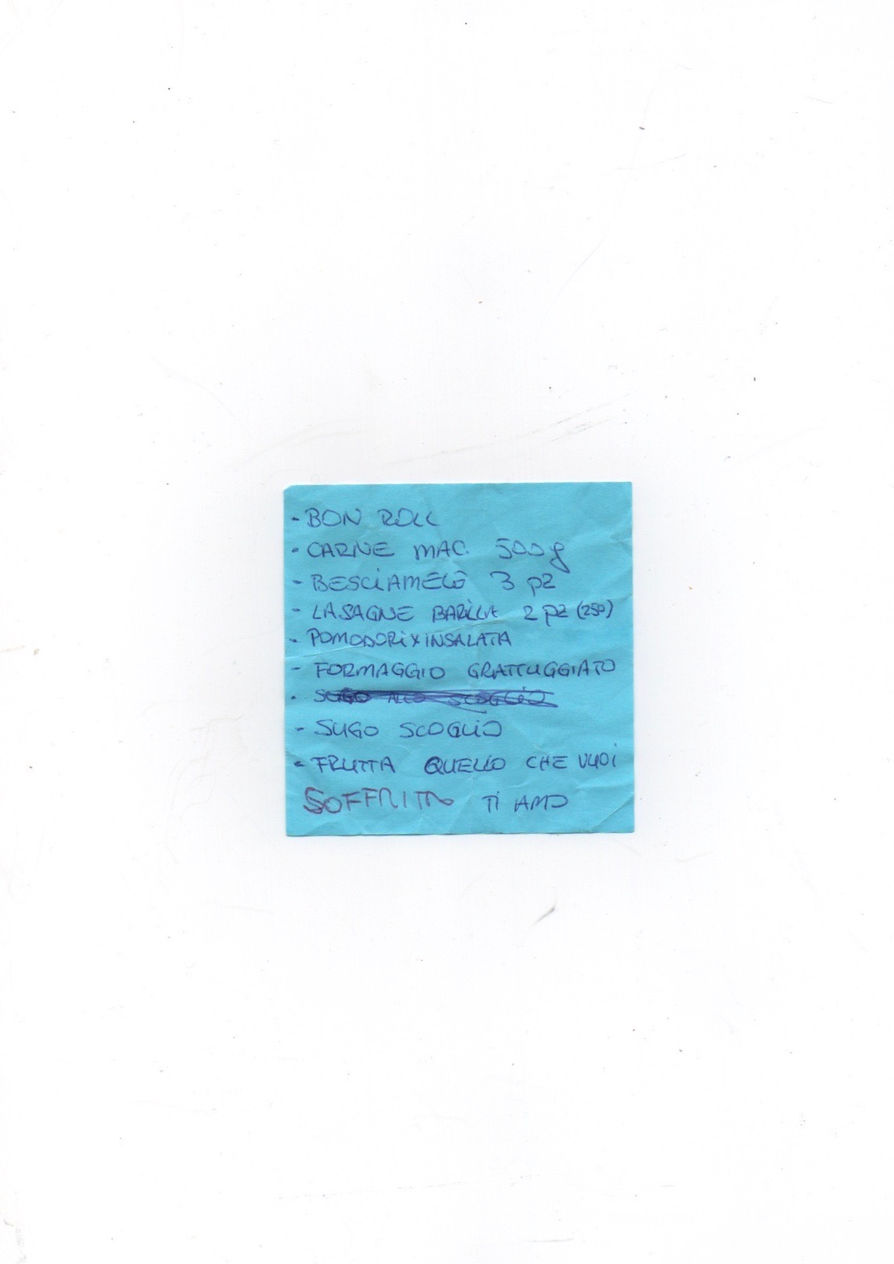 - BON ROLL
- CARNE MAC. 500 g
- BESCIAMELE 3 PZ
- LASAGNE BARILLA 2 PZ (250)
- POMODORI X INSALATA
- FORMAGGIO GRATTUGGIATO
- SUGO ALLO SCOGLIO
- SUGO SCOGLIO
- FRUTTA QUELLO CHE VUOI
SOFFRITTO TI AMO